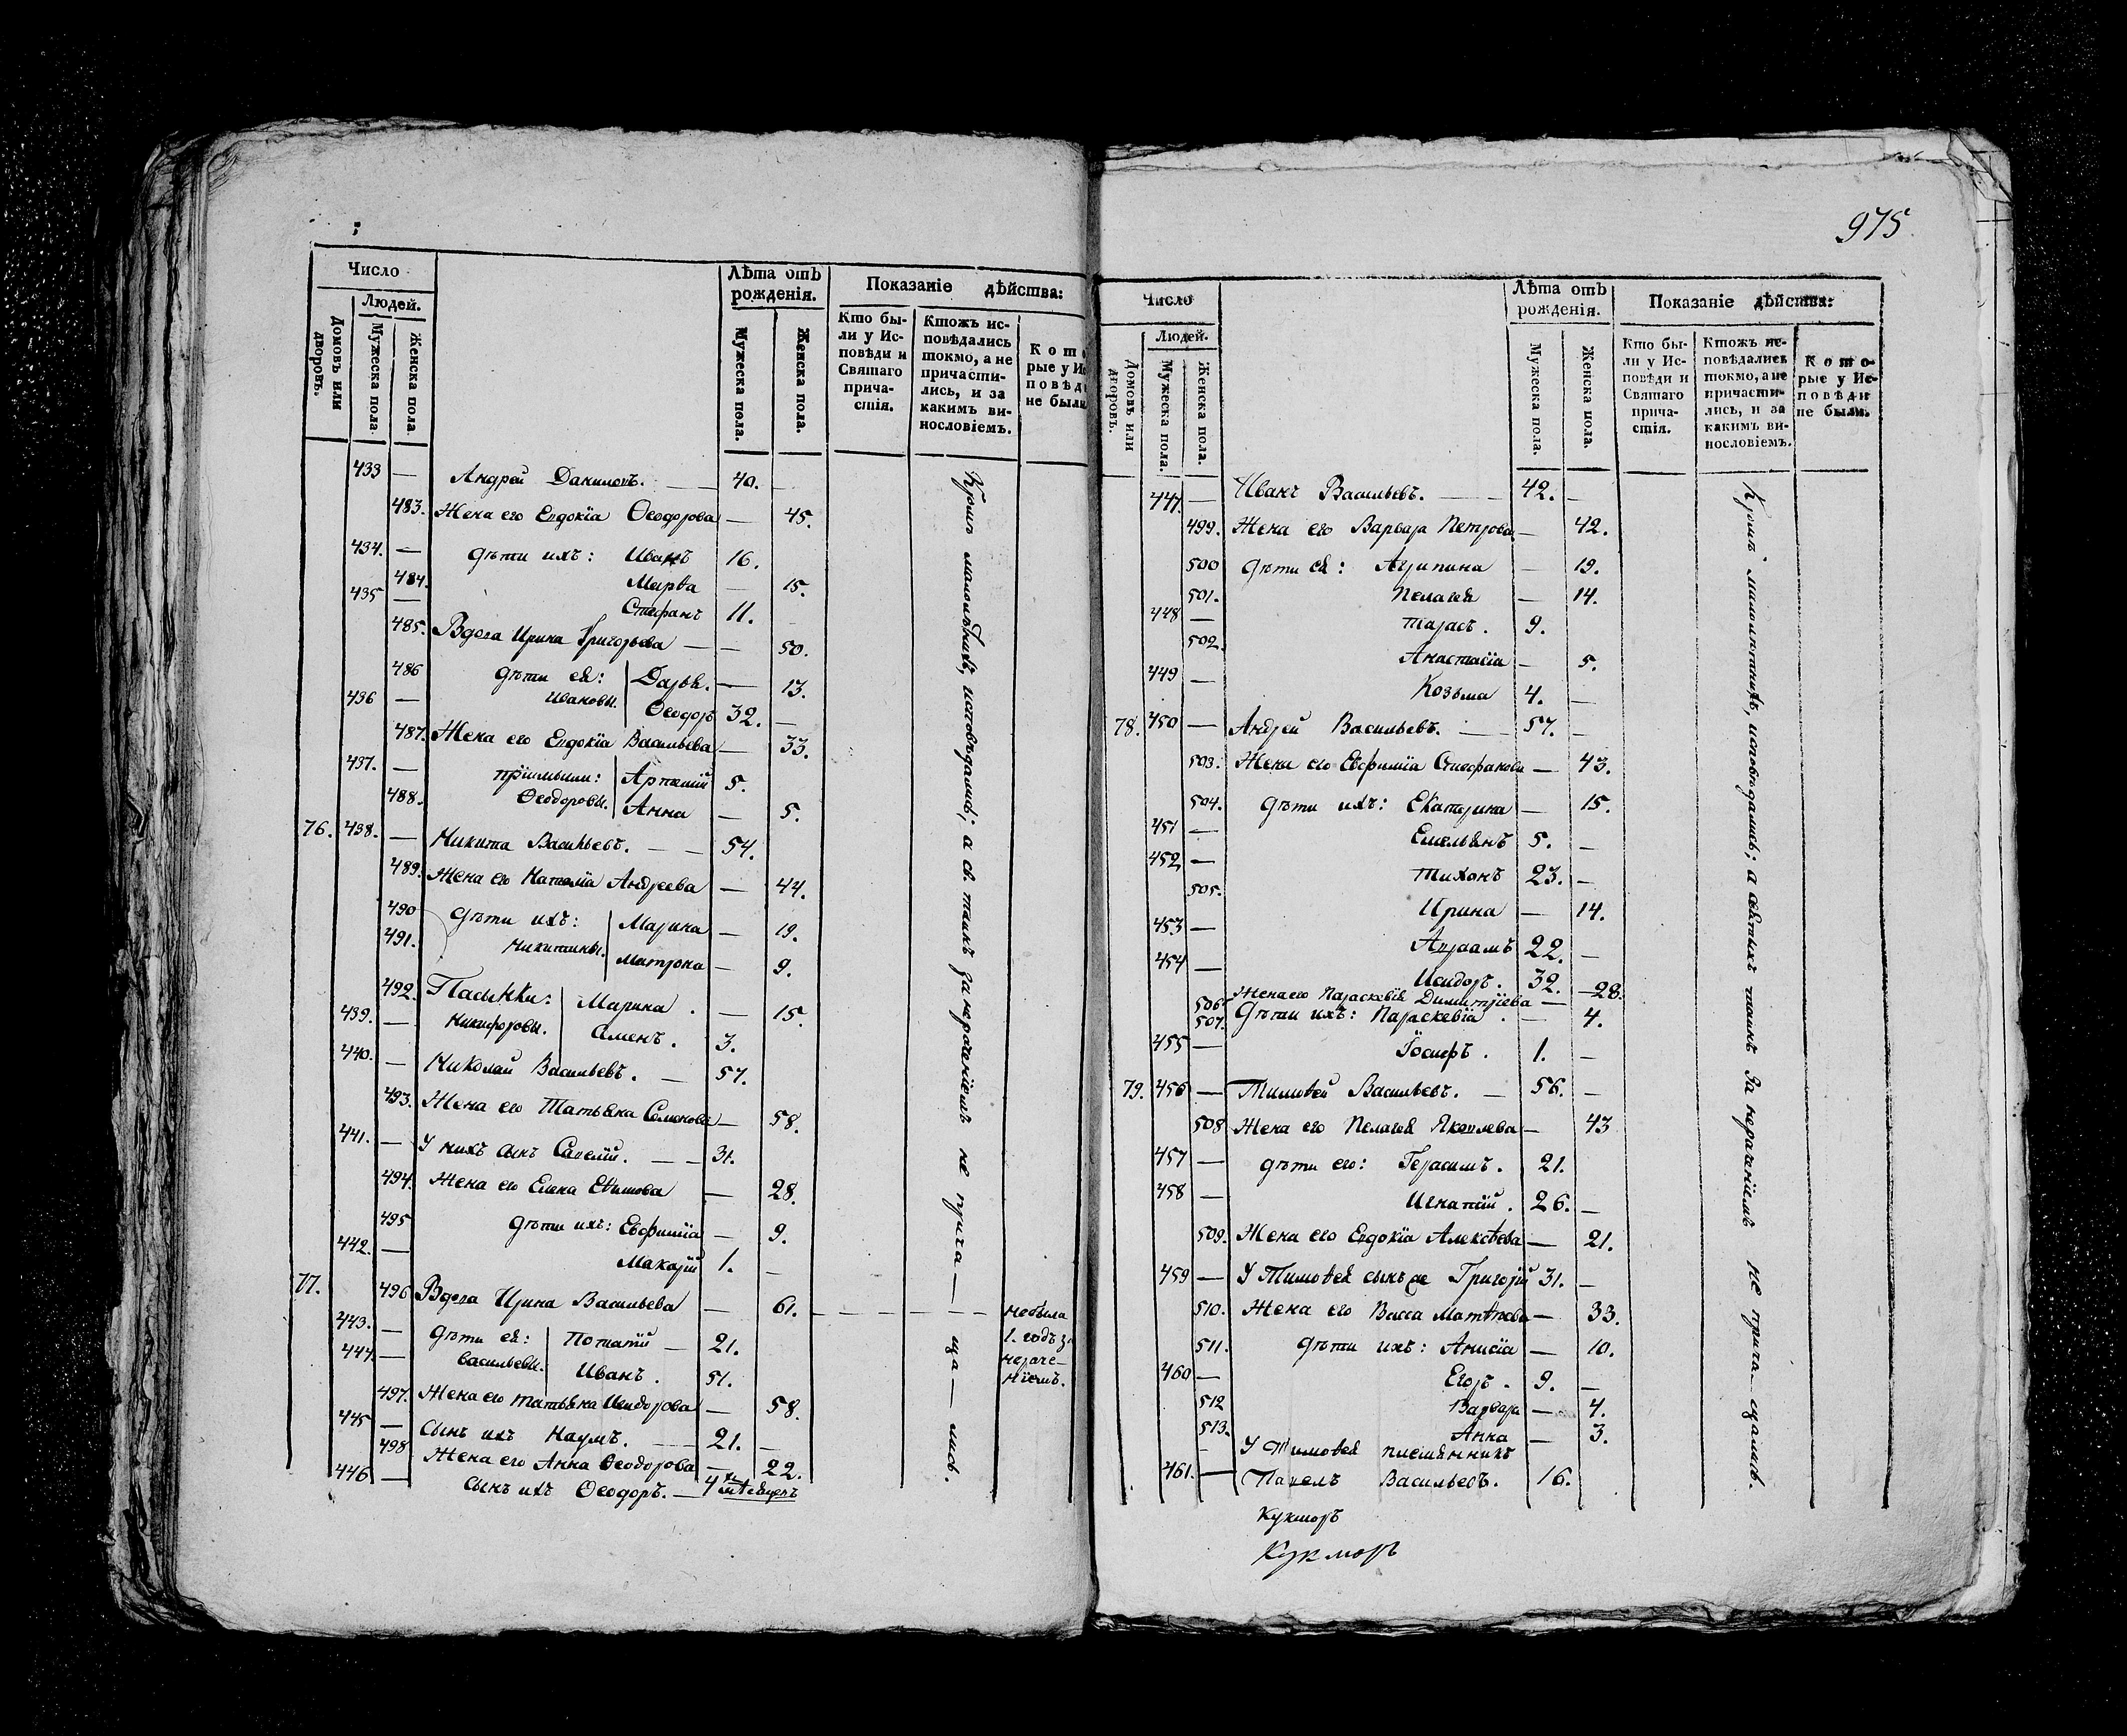 Число
Людей.
Домовъ или дворовъ.
Мужеска пола.
Женска пола.
Лѣта отъ рожденія.
Мужеска пола.
Женска пола.
Показаніе дѣйства:
Кто бы-
ли у Ис-
повѣди и
Святаго
прича-
стія.
Ктожъ ис-
повѣдались
токмо, а не
причасти-
лись, и за
какимъ ви-
нословіемъ.
Кото
рые у Ис
повѣд
не были
433 — Андрей Даниловъ. — 40. —
483. Жена его Евдокіа Ѳеодорова — 45.
434. — дѣти ихъ: Иванъ 16.
484. Марѳа — 15.
435 — Стефанъ 11.
485. Вдова Ирина Григорьева — — 50.
486 дѣти ея: Дарья. — 13.
436 — Ивановы. Ѳеодоръ 32. —
487. Жена его Евдокіа Васильева — 33.
437. — пріемыши: Артемій 5.
488. Ѳеодоровы. Анна — 5.
76. 438. — Никита Васильевъ. — — 54.
489. Жена его Наталіа Андреева — 44.
490 дѣти ихъ: Марина — 19.
491. Никитины. Матрона — 9.
492. Пасынки: Марина . — 15.
439. — Никифоровы. Семенъ . 3.
440. — Николай Васильевъ. — 57.
493. Жена его Татьяна Семенова — 58.
441. — У нихъ сынъ Савелій. — — 31.
494. Жена его Елена Еѳимова — 28.
495 дѣти ихъ: Евфиміа — 9.
442. — Макарій 1. —
77. 496 Вдова Ирина Васильева — 61. — — — — — — небыла
443. — дѣти ея: Потапій — 21. 1. годъ за
444. — Васильевы. Иванъ . 51. нераче-
ніемъ.
497. Жена его Татьяна Исидорова — 58.
445 — Сынъ ихъ Наумъ. — 21. —
498 Жена его Анна Ѳеодорова — 22.
446 — сынъ ихъ Ѳеодоръ. — 4хъ мѣсяцевъ
Кромѣ малолѣтнихъ, исповѣдались; а св. таинъ за нераченіемъ не прича — ща — лись.
975
Число
Людей.
Домовъ или дворовъ.
Мужеска пола.
Женска пола.
Лѣта отъ рожденія.
Мужеска пола.
Женска пола.
Показаніе дѣйства:
Кто бы-
ли у Ис-
повѣди и
Святаго
прича-
стія.
Ктожъ ис-
повѣдались
токмо, а не
причасти-
лись, и за
какимъ ви-
нословіемъ.
Кото-
рые у Ис-
повѣди
не были.
447. — Иванъ Васильевъ. — 42. —
499. Жена его Варвара Петрова — 42.
500 дѣти ея: Агрипина — 19.
501. Пелагея — 14.
448 — Тарасъ. 9.
502. Анастасіа — 5.
449 — Козьма 4. —
78. 450 — Андрей Васильевъ. — 57. —
503. Жена его Евфиміа Стефанова — 43.
504. дѣти ихъ: Екатерина — 15.
451 — Емельянъ 5. —
452 — Тихонъ 23. —
505. Ирина — 14.
453 — Авраамъ 22. —
454 — Исидоръ. 32.
506 Жена его Параскевія Димитріева — 28.
507. Дѣти ихъ: Параскевіа . — 4.
455 — Іосифъ . 1. —
79. 456 — Тимоѳей Васильевъ. — 56. —
508 Жена его Пелагея Яковлева — 43
457 — дѣти его: Герасимъ. 21.
458 — Игнатій. 26. —
509. Жена его Евдокіа Алексѣева — 21.
459 — У Тимоѳея сынъ же Григорій 31. —
510. Жена его Васса Матѳѣева — 33.
511. дѣти ихъ: Анисіа — 10.
460 — Егоръ. 9. —
512 Варвара — 4.
513. Анна — 3.
У Тимоѳея племянникъ
461. — Павелъ Васильевъ. 16.
Кромѣ малолѣтнихъ, исповѣдались; а святыхъ таинъ за нераченіемъ не прича — щались.
Кукморъ
Кукморъ